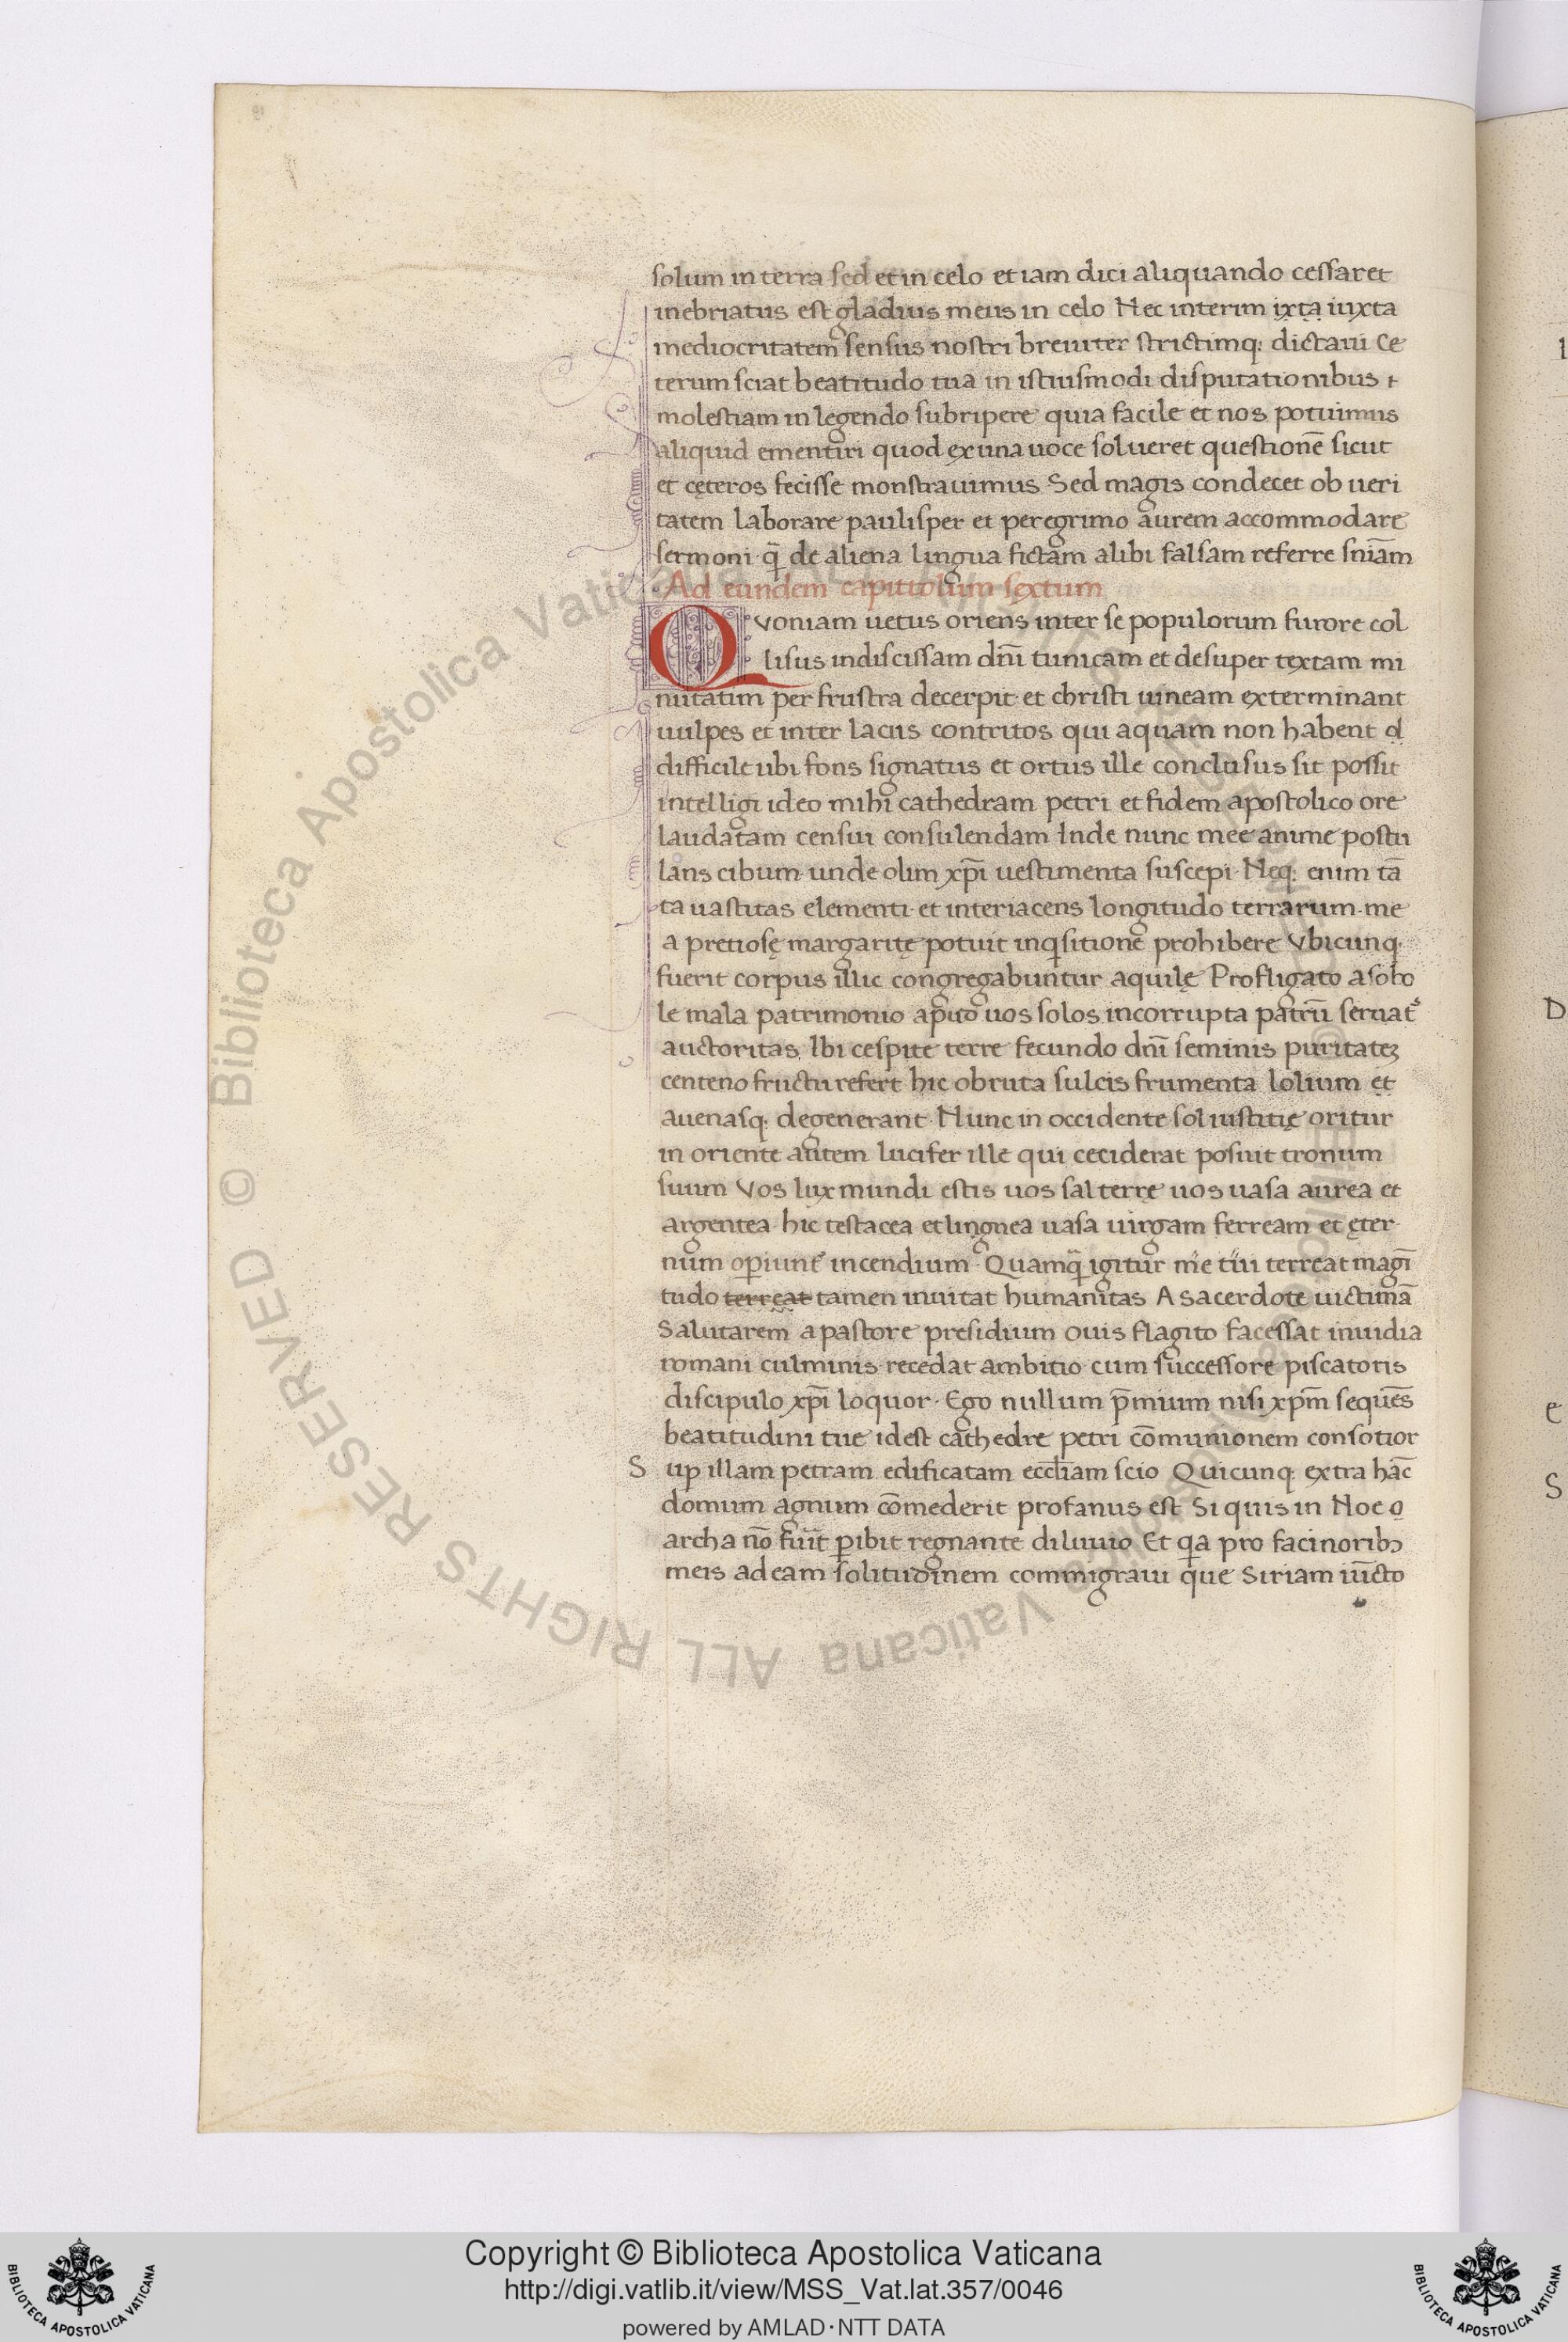 solum in terra sed et in celo et iam dici aliquando cessaret
inebriatus est gladius meus in celo Nec interim ixta iuxta
mediocritatem sensus nostri breuiter strictimq: dictaui Ce
terum sciat beatitudo tua in istiusmodi disputationibus
molestiam in legendo subripere quia facile et nos potuimus
aliquid ementiri quod ex una uoce solueret questionē sicut
et cęteros fecisse monstrauimus Sed magis condecet ob ueri
tatem laborare paulisper et peregrino aurem accommodare
sermoni · q̄ de aliena lingua fictam alibi falsam referre sniam̄
Ad eundem capitulum sextum
Qvoniam uetus oriens inter se populorum furore col
lisus indiscissam dn̄i tunicam et desuper textam mi
nutatim per frustra decerpit · et christi uineam exterminant
uulpes et inter lacus contritos qui aquam non habent d
difficile ubi fons signatus et ortus ille conclusus sit possit
intelligi ideo mihi cathedram petri et fidem apostolico ore
laudatam censui consulendam Inde nunc mee anime postu
lans cibum unde olim xp̄i uestimenta suscepi · Neq: enim tā
ta uastitas elementi · et interiacens longitudo terrarum · me
a pretiosę margaritę potuit inq̇sitione prohibere Vbicunq·
fuerit corpus illic congregabuntur aquilę Profligato a sobo
le mala patrimonio ap̄uđ uos solos incorrupta patrū seruat᷒
auctoritas. Ibi cespite terre fecundo dn̄i seminis puritateꝫ
centeno fructu refert hic obruta sulcis frumenta lolium et
auenasq: degenerant · Nunc in occidente sol iustitię oritur
in oriente autem lucifer ille qui ceciderat posuit tronum
suum Vos lux mundi estis uos sal terrę uos uasa aurea et
argentea · hic testacea et lingnea uasa uirgam ferream et ęter
num op̄iunt᷒ incendium · Quamq̄ igitur me tui terreat magī
tudo terreat tamen inuitat humanitas A sacerdote uictimā
Salutarem a pastore presidium ouis flagito facessat inuidia
romani culminis recedat ambitio cum successore piscatoris
discipulo xp̄i loquor · Ego nullum p̄mium nisi xp̄m sequēs
beatitudini tue id est cathedre petri cōmunionem consotior
S up illam petram edificatam eccl̄iam scio Quicunq: extra hāc
domum agnum cōmederit profanus est Si quis in Noe
archa nō fuīt p̄ibit regnante diluuio Et qa pro facinoribꝫ
meis ad eam solitudinem commigraui que Siriam iūcto
Copyright © Biblioteca Apostolica Vaticana
http://digi.vatlib.it/view/MSS_Vat.lat.357/0046
powered by AMLAD · NTT DATA
BIBLIOTECA APOSTOLICA VATICANA
BIBLIOTECA APOSTOLICA VATICANA
© Biblioteca Apostolica Vaticana ALL RIGHTS RESERVED